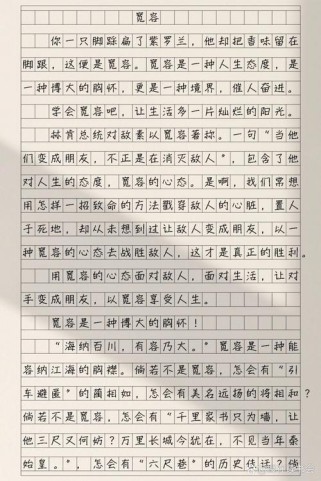 宽容
你一只脚踩扁了紫罗兰，他却把香味留在
脚跟，这便是宽容。宽容是一种人生态度，是
一种博大的胸怀，更是一种境界，催人奋进。
学会宽容吧，让生活多一片灿烂的阳光。
林肯总统对敌素以宽容著称。一句“当他
们变成朋友，不正是在消灭敌人”，包含了他
对人生的态度，宽容的心态。是啊，我们常想
用怎样一招致命的方法戳穿敌人的心脏，置人
于死地，却从未想到过让敌人变成朋友，以一
种宽容的心态去战胜敌人，这才是真正的胜利。
用宽容的心态面对敌人，面对生活，让对
手变成朋友，以宽容享受人生。
宽容是一种博大的胸怀！
“海纳百川，有容乃大。”宽容是一种能
容纳江海的胸襟。倘若不是宽容，怎会有“引
车避匿”的蔺相如，怎会有美名远扬的将相和？
倘若不是宽容，怎会有“千里家书只为墙，让
他三尺又何妨？万里长城今犹在，不见当年秦
始皇。”，怎会有“六尺巷”的历史佳话？倘